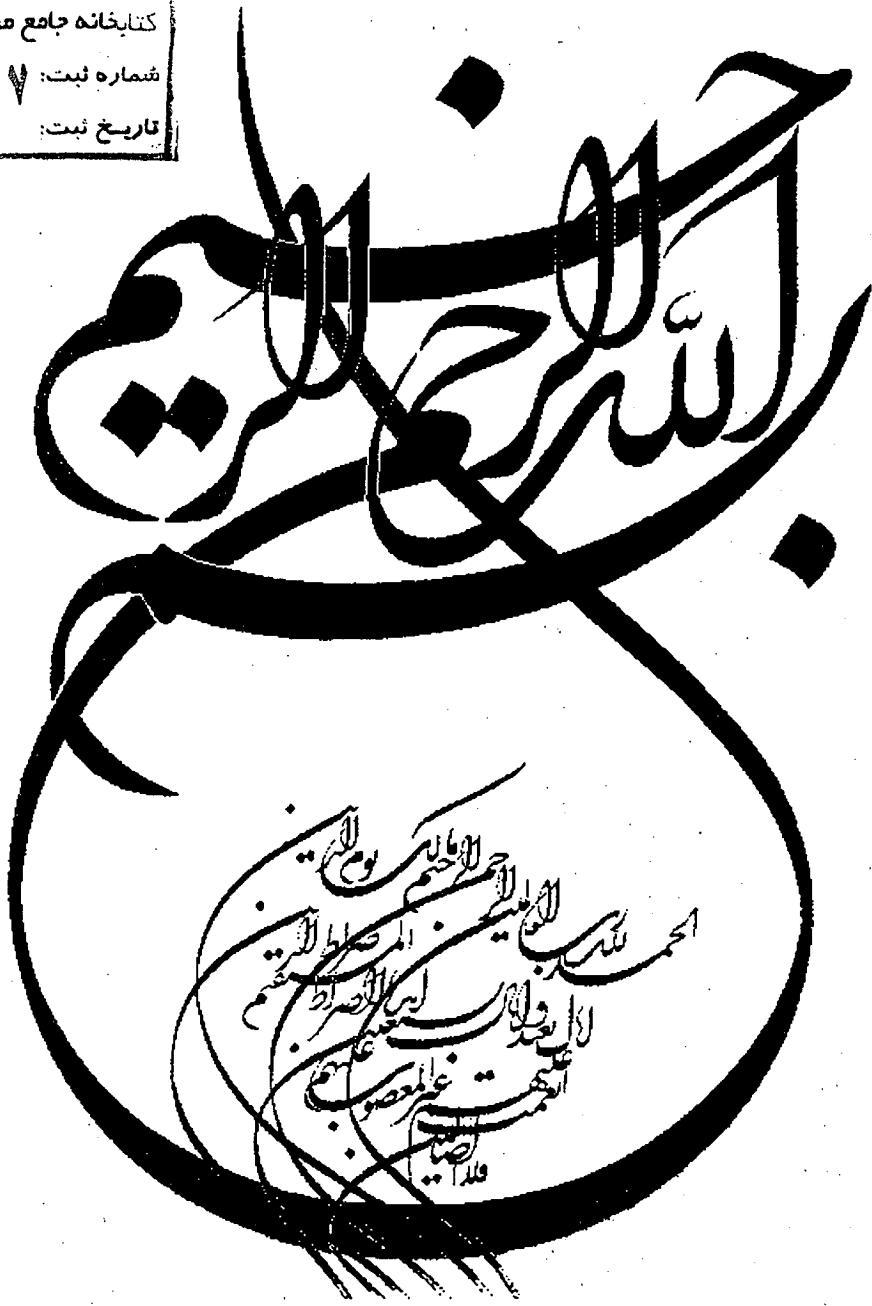 کتابخانه جامع
شماره ثبت: ۷
تاریخ ثبت:
بسم الله الرحمن الرحیم
الحمد لله رب العالمین الرحمن الرحیم مالک یوم الدین
ایاک نعبد و ایاک نستعین اهدنا الصراط المستقیم صراط الذین
انعمت علیهم غیر المغضوب علیهم
ولا الضالین